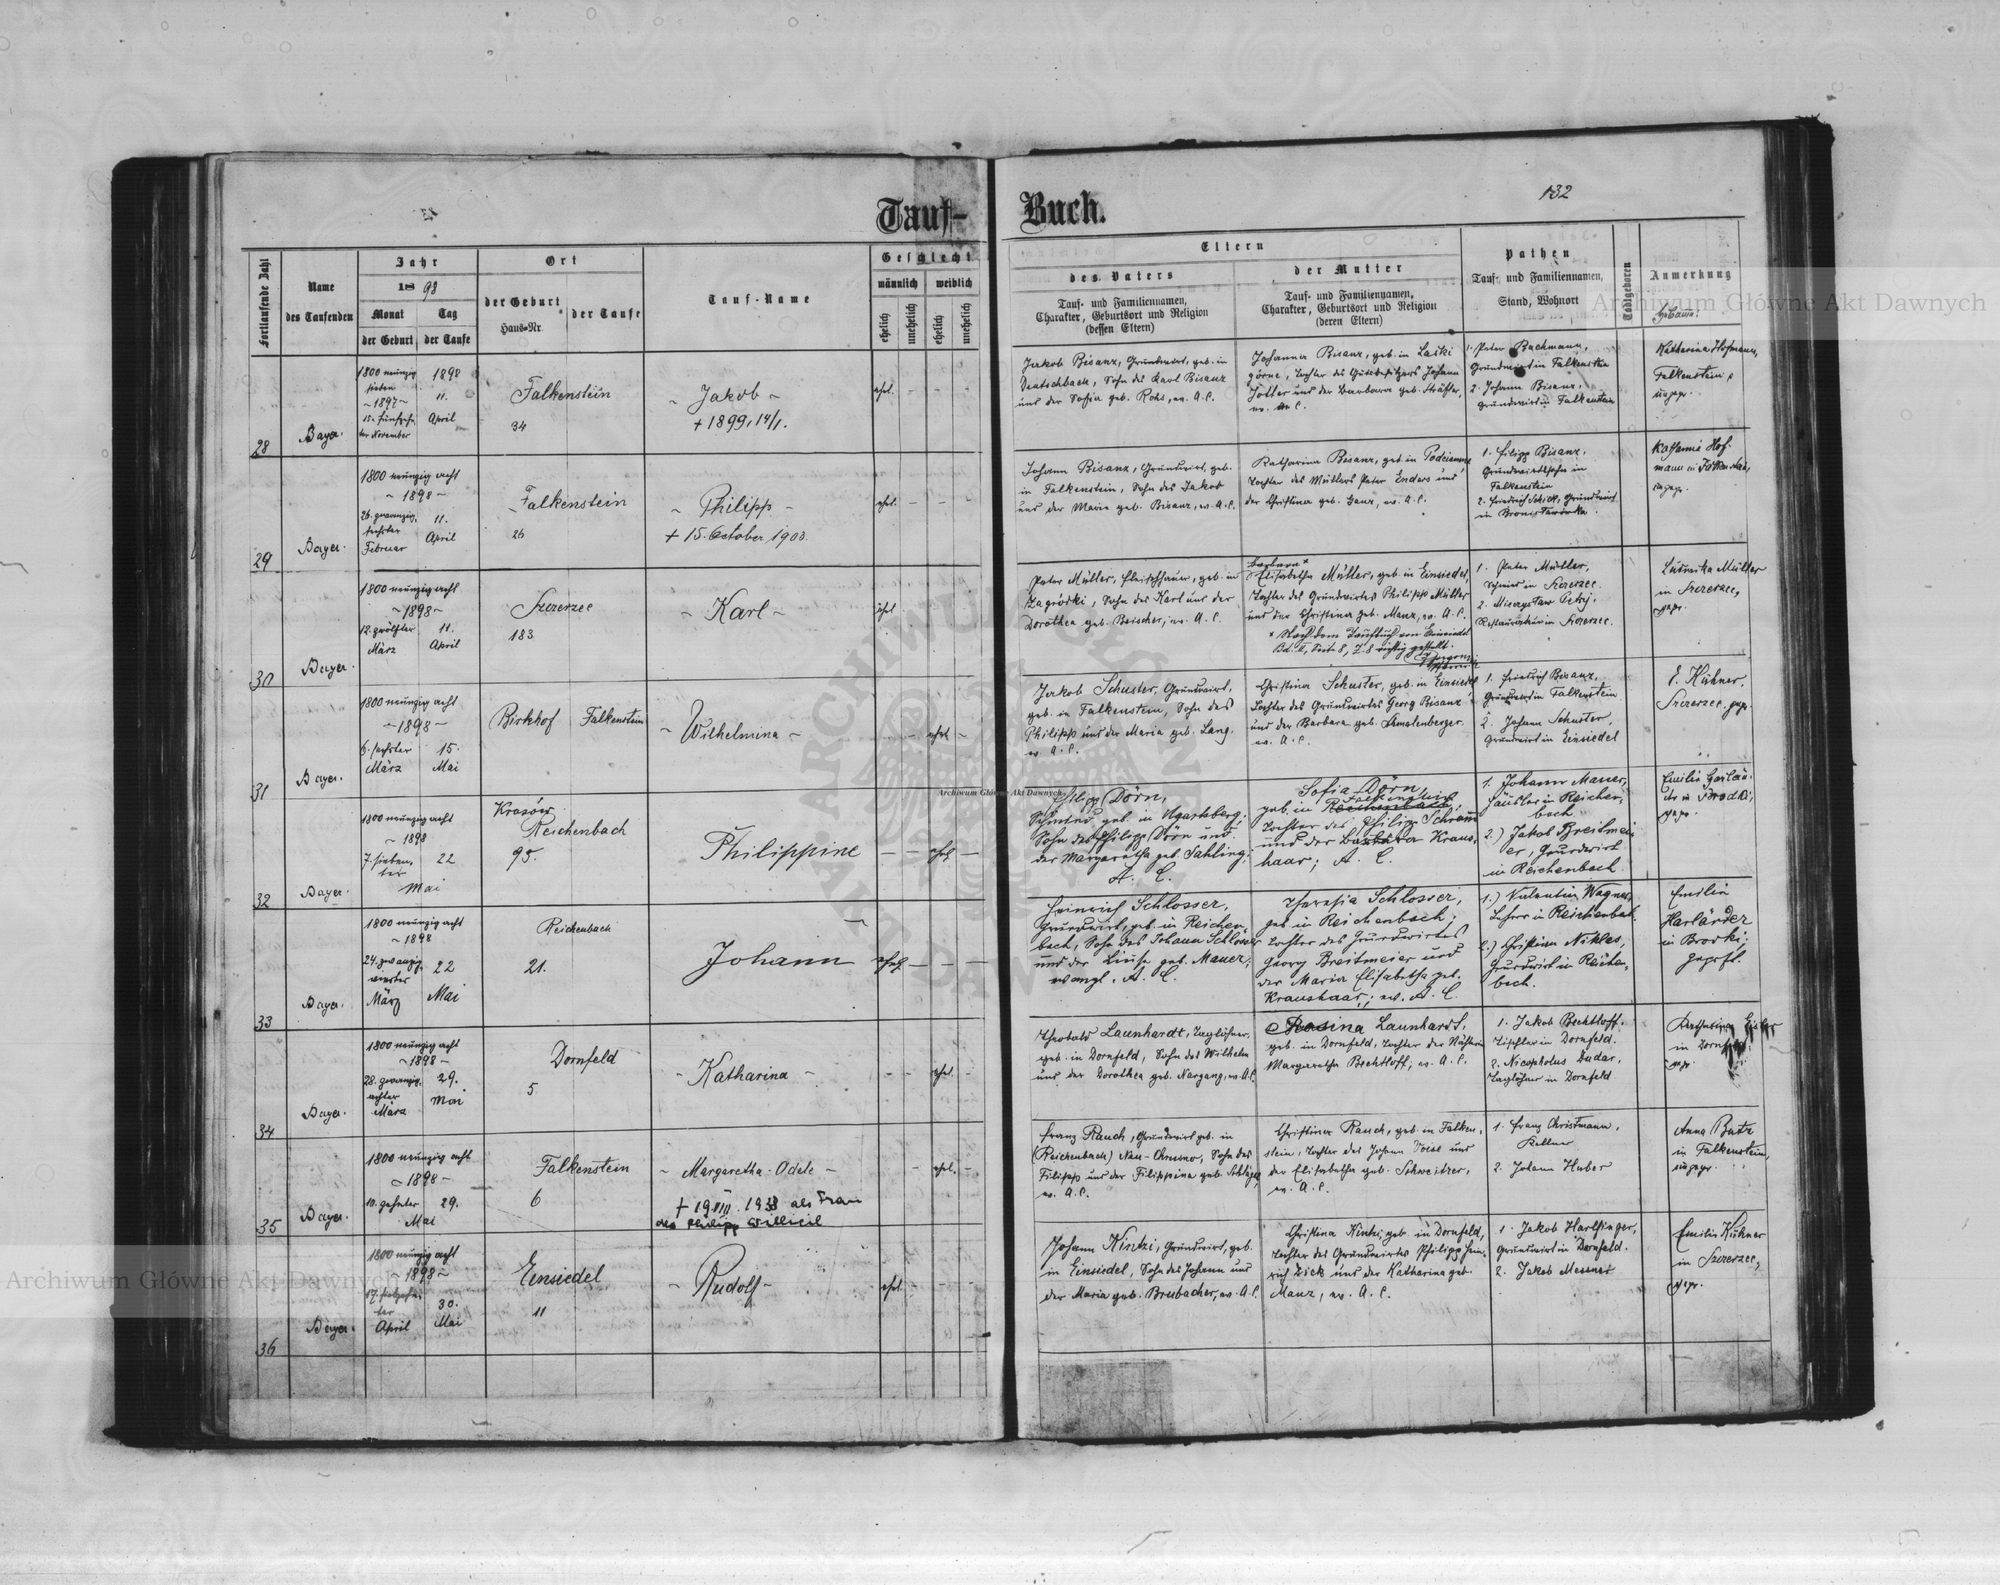 132
Tauf-
Buch.
Fortlaufende Zahl
Name
des Taufenden
Jahr
18 98
Monat
Tag
der Geburt
der Taufe
Ort
der Geburt
Haus-Nr.
der Taufe
Tauf-Name
Geschlecht
männlich
weiblich
ehelich
unehelich
ehelich
unehelich
Eltern
des Vaters
Tauf- und Familiennamen,
Charakter, Geburtsort und Religion
(dessen Eltern)
der Mutter
Tauf- und Familiennamen,
Charakter, Geburtsort und Religion
(deren Eltern)
Pathen
Tauf- und Familiennamen,
Stand, Wohnort
Todtgeboren
Anmerkung
28
Bayer.
1800 neunzig
sieben
~ 1897 ~
15. fünfzehn
ter November
1898
11.
April
Falkenstein
34
~ Jakob ~
+ 1899, 14/1.
ehel.
Jakob Bisanz, Grundwirt, geb. in
Deutschbach, Sohn des Karl Bisanz
und der Sofia geb. Rohs, ev. A. C.
Johanna Bisanz, geb. in Laski
górne, Tochter des Gutsbesitzers Johann
und der Barbara geb.
1. Peter Bachmann,
Grundwirt in Falkenstein
2. Johann Bisanz,
Grundwirt in Falkenstein
Katharina Hofmann,
Falkenstein
29
Bayer.
1800 neunzig acht
~ 1898 ~
26. zwanzig
sechster
Februar
11.
April
Falkenstein
26
~ Philipp ~
+ 15. October 1903.
ehel.
Johann Bisanz, Grundwirt, geb.
in Falkenstein, Sohn des Jakob
und der Maria geb. Bisanz, ev. A. C.
Katharina Bisanz, geb. in
Tochter des Müllers Peter Enders und
der Christina geb. Ganz, ev. A. C.
1. Filipp Bisanz,
Grundwirtssohn in
Falkenstein
2. Friedrich Schick, Grundwirt
in Bronisławówka.
Katharina Hof-
mann in Falkenstein,
30
Bayer.
1800 neunzig acht
~ 1898 ~
12. zwölfter
März
11.
April
Szczerzec
183
~ Karl ~
ehel.
Peter Müller, Fleischhauer, geb. in
Zagródki, Sohn des Karl und der
Dorothea geb. Beischer, ev. A. C.
Barbara ×
Elisabetha Müller, geb. in Einsiedel,
Tochter des Grundwirtes Philipp Müller
und der Christina geb. Manz, ev. A. C.
× Nach dem Taufbuch von Einsiedel
Bd. II, Seite 8, Z. 8 richtig gestellt.
1. Peter Müller,
Schmied in Szczerzec.
2. Mieczysław Petry,
Restaurateur in Szczerzec.
Ludwika Müller
in Szczerzec,
gepr.
31
Bayer.
1800 neunzig acht
~ 1898 ~
6. sechster
März
15.
Mai
Birkhof
Falkenstein
~ Wilhelmina ~
ehel.
Jakob Schuster, Grundwirt,
geb. in Falkenstein, Sohn des
Philipp und der Maria geb. Lang.
ev. A. C.
Christina Schuster, geb. in Einsiedel
Tochter des Grundwirtes Georg Bisanz
und der Barbara geb. Amalenberger.
ev. A. C.
1. Friedrich Bisanz,
Grundwirt in Falkenstein
2. Johann Schuster,
Grundwirt in Einsiedel
E. Kühner,
Szczerzec. gepr.
32
Bayer.
1800 neunzig acht
~ 1898
7. sieben
ter
22
Mai
Krasów
Reichenbach
95.
Philippine
ehel.
Philipp Dörn,
Schmied geb. in Ugartsberg;
Sohn des Philipp Dörn und
der Margaretha geb. Sahling;
A. C.
Sofia Dörn
geb. in Reichenbach Falkenstein;
Tochter des Philipp Schramm
und der Barbara Kraus-
haar; A. C.
1. Johann Mauer,
Häusler in Reichen-
bach
2.) Jakob Breitmei-
er, Grundwirt
in Reichenbach
Emilie Harlän-
der in Brodki;
gepr.
33
Bayer.
1800 neunzig acht
~ 1898
24. zwanzig
vierter
März
22
Mai
Reichenbach
21.
Johann
ehel.
Heinrich Schlosser,
Grundwirt, geb. in Reichen-
bach, Sohn des Johann Schlosser
und der Luise geb. Mauer;
evangl. A. C.
Theresia Schlosser,
geb. in Reichenbach;
Tochter des Grundwirtes
Georg Breitmeier und
der Maria Elisabetha geb.
Kraushaar; ev. A. C.
1.) Valentin Wagner,
Lehrer in Reichenbach
2.) Christian Nikles,
Grundwirt in Reichen-
bach.
Emilie
Harländer
in Brodki;
geprft.
34
Bayer.
1800 neunzig acht
~ 1898 ~
28. zwanzig
achter
März
29.
Mai
Dornfeld
5
~ Katharina ~
ehel.
Theobald Launhardt, Taglöhner,
geb. in Dornfeld, Sohn des Wilhelm
und der Dorothea geb. Nargang, ev. A. C.
Rosina Launhardt,
geb. in Dornfeld, Tochter der Näherin
Margaretha Bechtloff, ev. A. C.
1. Jakob Bechtloff,
Tischler in Dornfeld.
2. Nicopholus Dudar,
Taglöhner in Dornfeld
Katharina
in Dornfeld,
gepr.
35
Bayer.
1800 neunzig acht
~ 1898 ~
10. zehnter
Mai
29.
Falkenstein
6
~ Margaretha Adele ~
+ 19. VIII. 1933 als Frau
des Philipp Willicil
ehel.
Franz Rauch, Grundwirt geb. in
(Reichenbach) Nau-Chrusno, Sohn des
Filipp und der Filippina geb.
ev. A. C.
Christina Rauch, geb. in Falken-
stein, Tochter des Johann und
der Elisabetha geb. Schweitzer,
ev. A. C.
1. Franz Christmann,
Kellner
2. Johann Huber
Anna Butz
in Falkenstein,
36
Bayer.
1800 neunzig acht
~ 1898 ~
17. siebzehn
ter
April
30.
Mai
Einsiedel
11
~ Rudolf ~
ehel.
Johann Kintzi, Grundwirt, geb.
in Einsiedel, Sohn des Johann und
der Maria geb. Brubacher, ev. A. C.
Christina Kintzi, geb. in Dornfeld,
Tochter des Grundwirtes Philipp Hein-
rich Dick und der Katharina geb.
Manz, ev. A. C.
1. Jakob Harlfinger,
Grundwirt in Dornfeld.
2. Jakob Messner
Emilie Kühner
in Szczerzec,
gepr.
Archiwum Główne Akt Dawnych
Archiwum Główne Akt Dawnych
Archiwum Główne Akt Dawnych